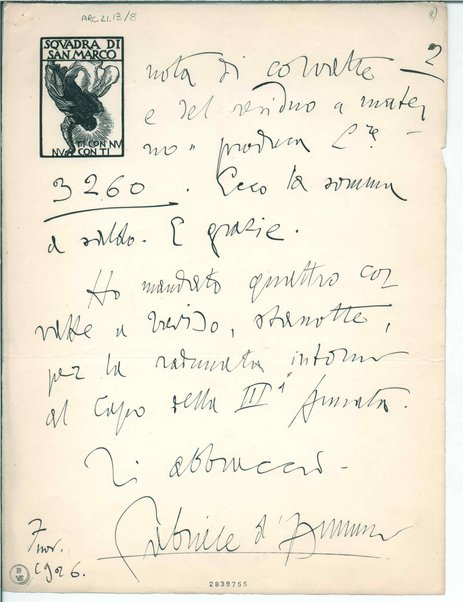 ARC.21.13/8
8)
2
SQVADRA DI
SAN MARCO
TI CON NV
NV CON TI
nota di corvatte
e del residuo "mater
no" produca Lire
3260. Ecco la somma
a saldo. E grazie.
Ho mandato quattro cor
vatte a, stanotte,
per la radunata intorno
al Capo della IIIa Armata.
Ti abbraccio
Gabriele d'Annunzio
7 nov.
1926.
2839755